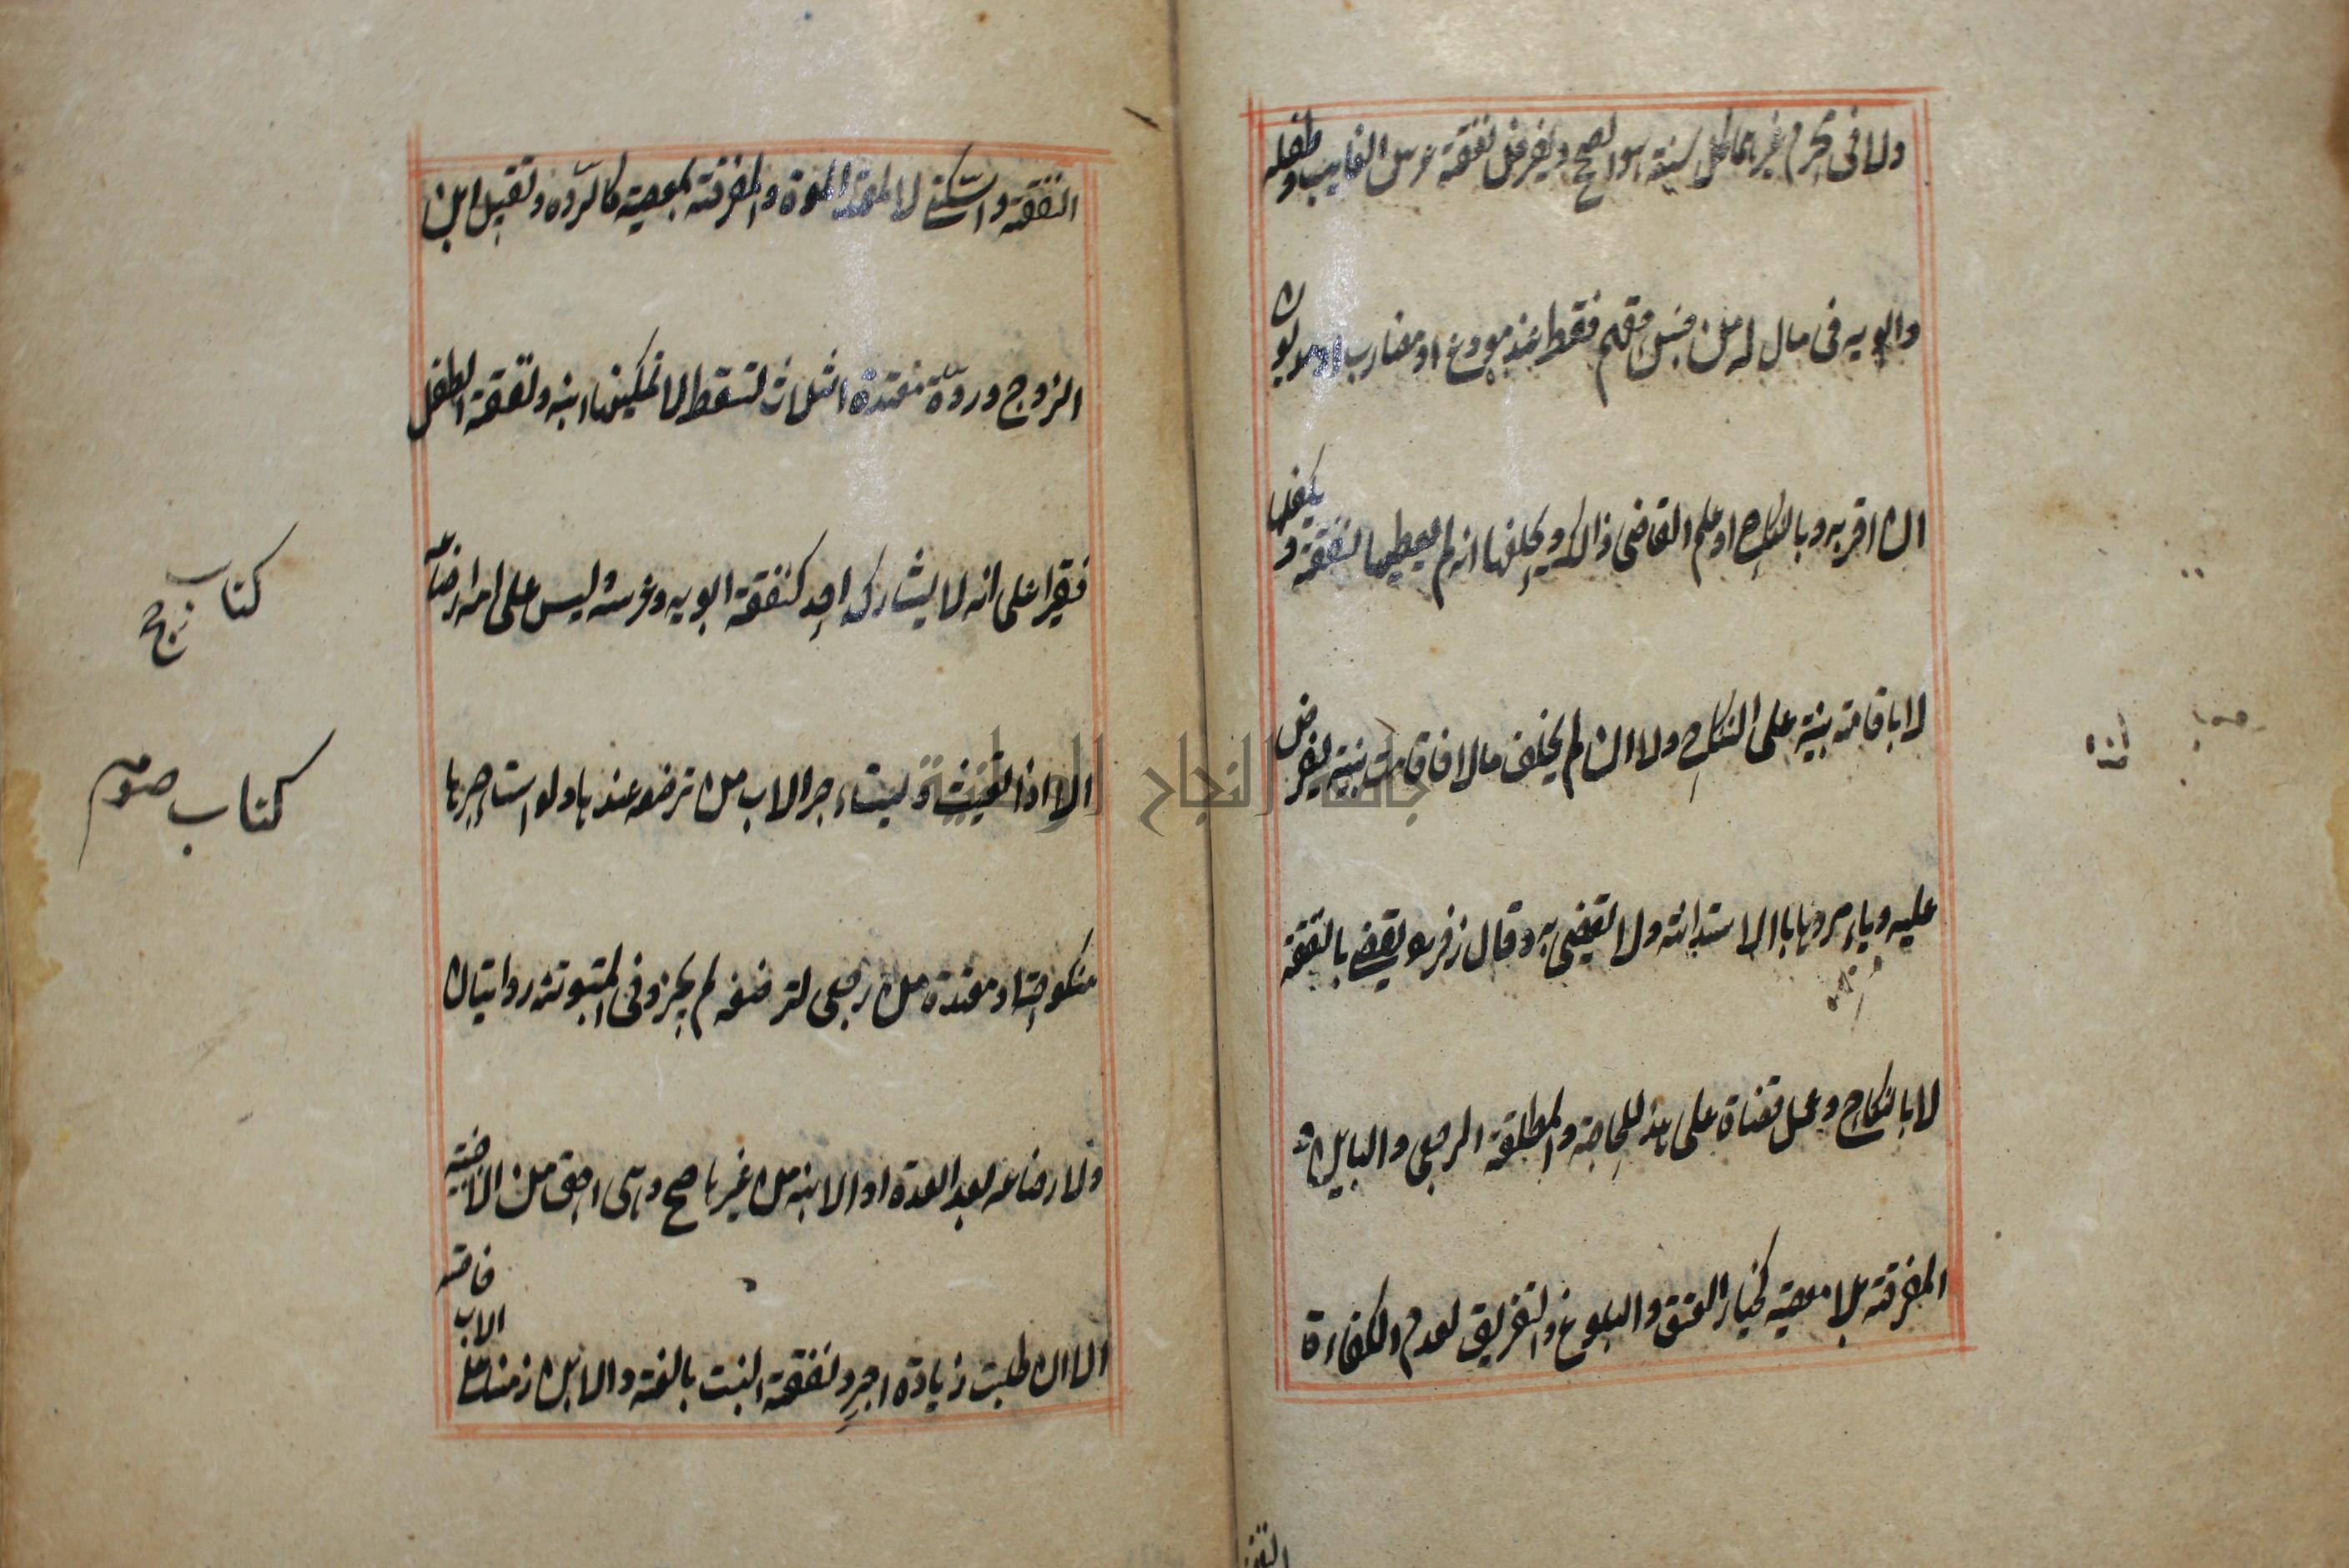 ولا فى محرم غيرها كل سنة هو الصح ويفرض نفقة عرس الغايب وطفله
وابويه فى مال له من جنس حقهم فقط عند مودع او مضارب او مديون
ان اقر به و بالنكاح او علم القاضى ذالك ويحلفها انه لم يعطها النفقة و يكفلها
لا باقامة بينة على النكاح ولا ان لم يخلف مالا فاقامت بينة ليفرض
عليه ويامرها بالاستدانة ولا يقضى به وقال زفر هو يقضى بالنفقة
لا بالنكاح وعمل قضاة على هذ للحاجة والمطلقة الرجعى والباين و
المفرقة بلا معصية كخيار العتق والبلوغ والتفريق لعدم الكفاءة
النفقة والسكنى لا لمعتدة الموت والمفرقة بمعصية كالردة وتقبيل ابن
الزوج وردة معتدة الثلاث تسقط لا تمكينها ابنه ونفقة الطفل
فقيرا على ابيه لا يشاركه احد كنفقة ابويه وعرسه وليس على امه ارضاعه
الا اذا تعينت ويستاءجر الاب من ترضعه عندها ولو استاءجرها
منكوحة او معتدة من رجعى لترضعه لم يجز وفى المبتوتة روايتان
ولارضاعه بعد العدة او الابنه من غيرها صح وهى احق من الاجنبية
الا ان طلبت زيادة اجر ونفقة البنت بالغة والابن زمنا على الاب
خاصة
كتاب
كتاب صوم
جامعة النجاح الوطنية